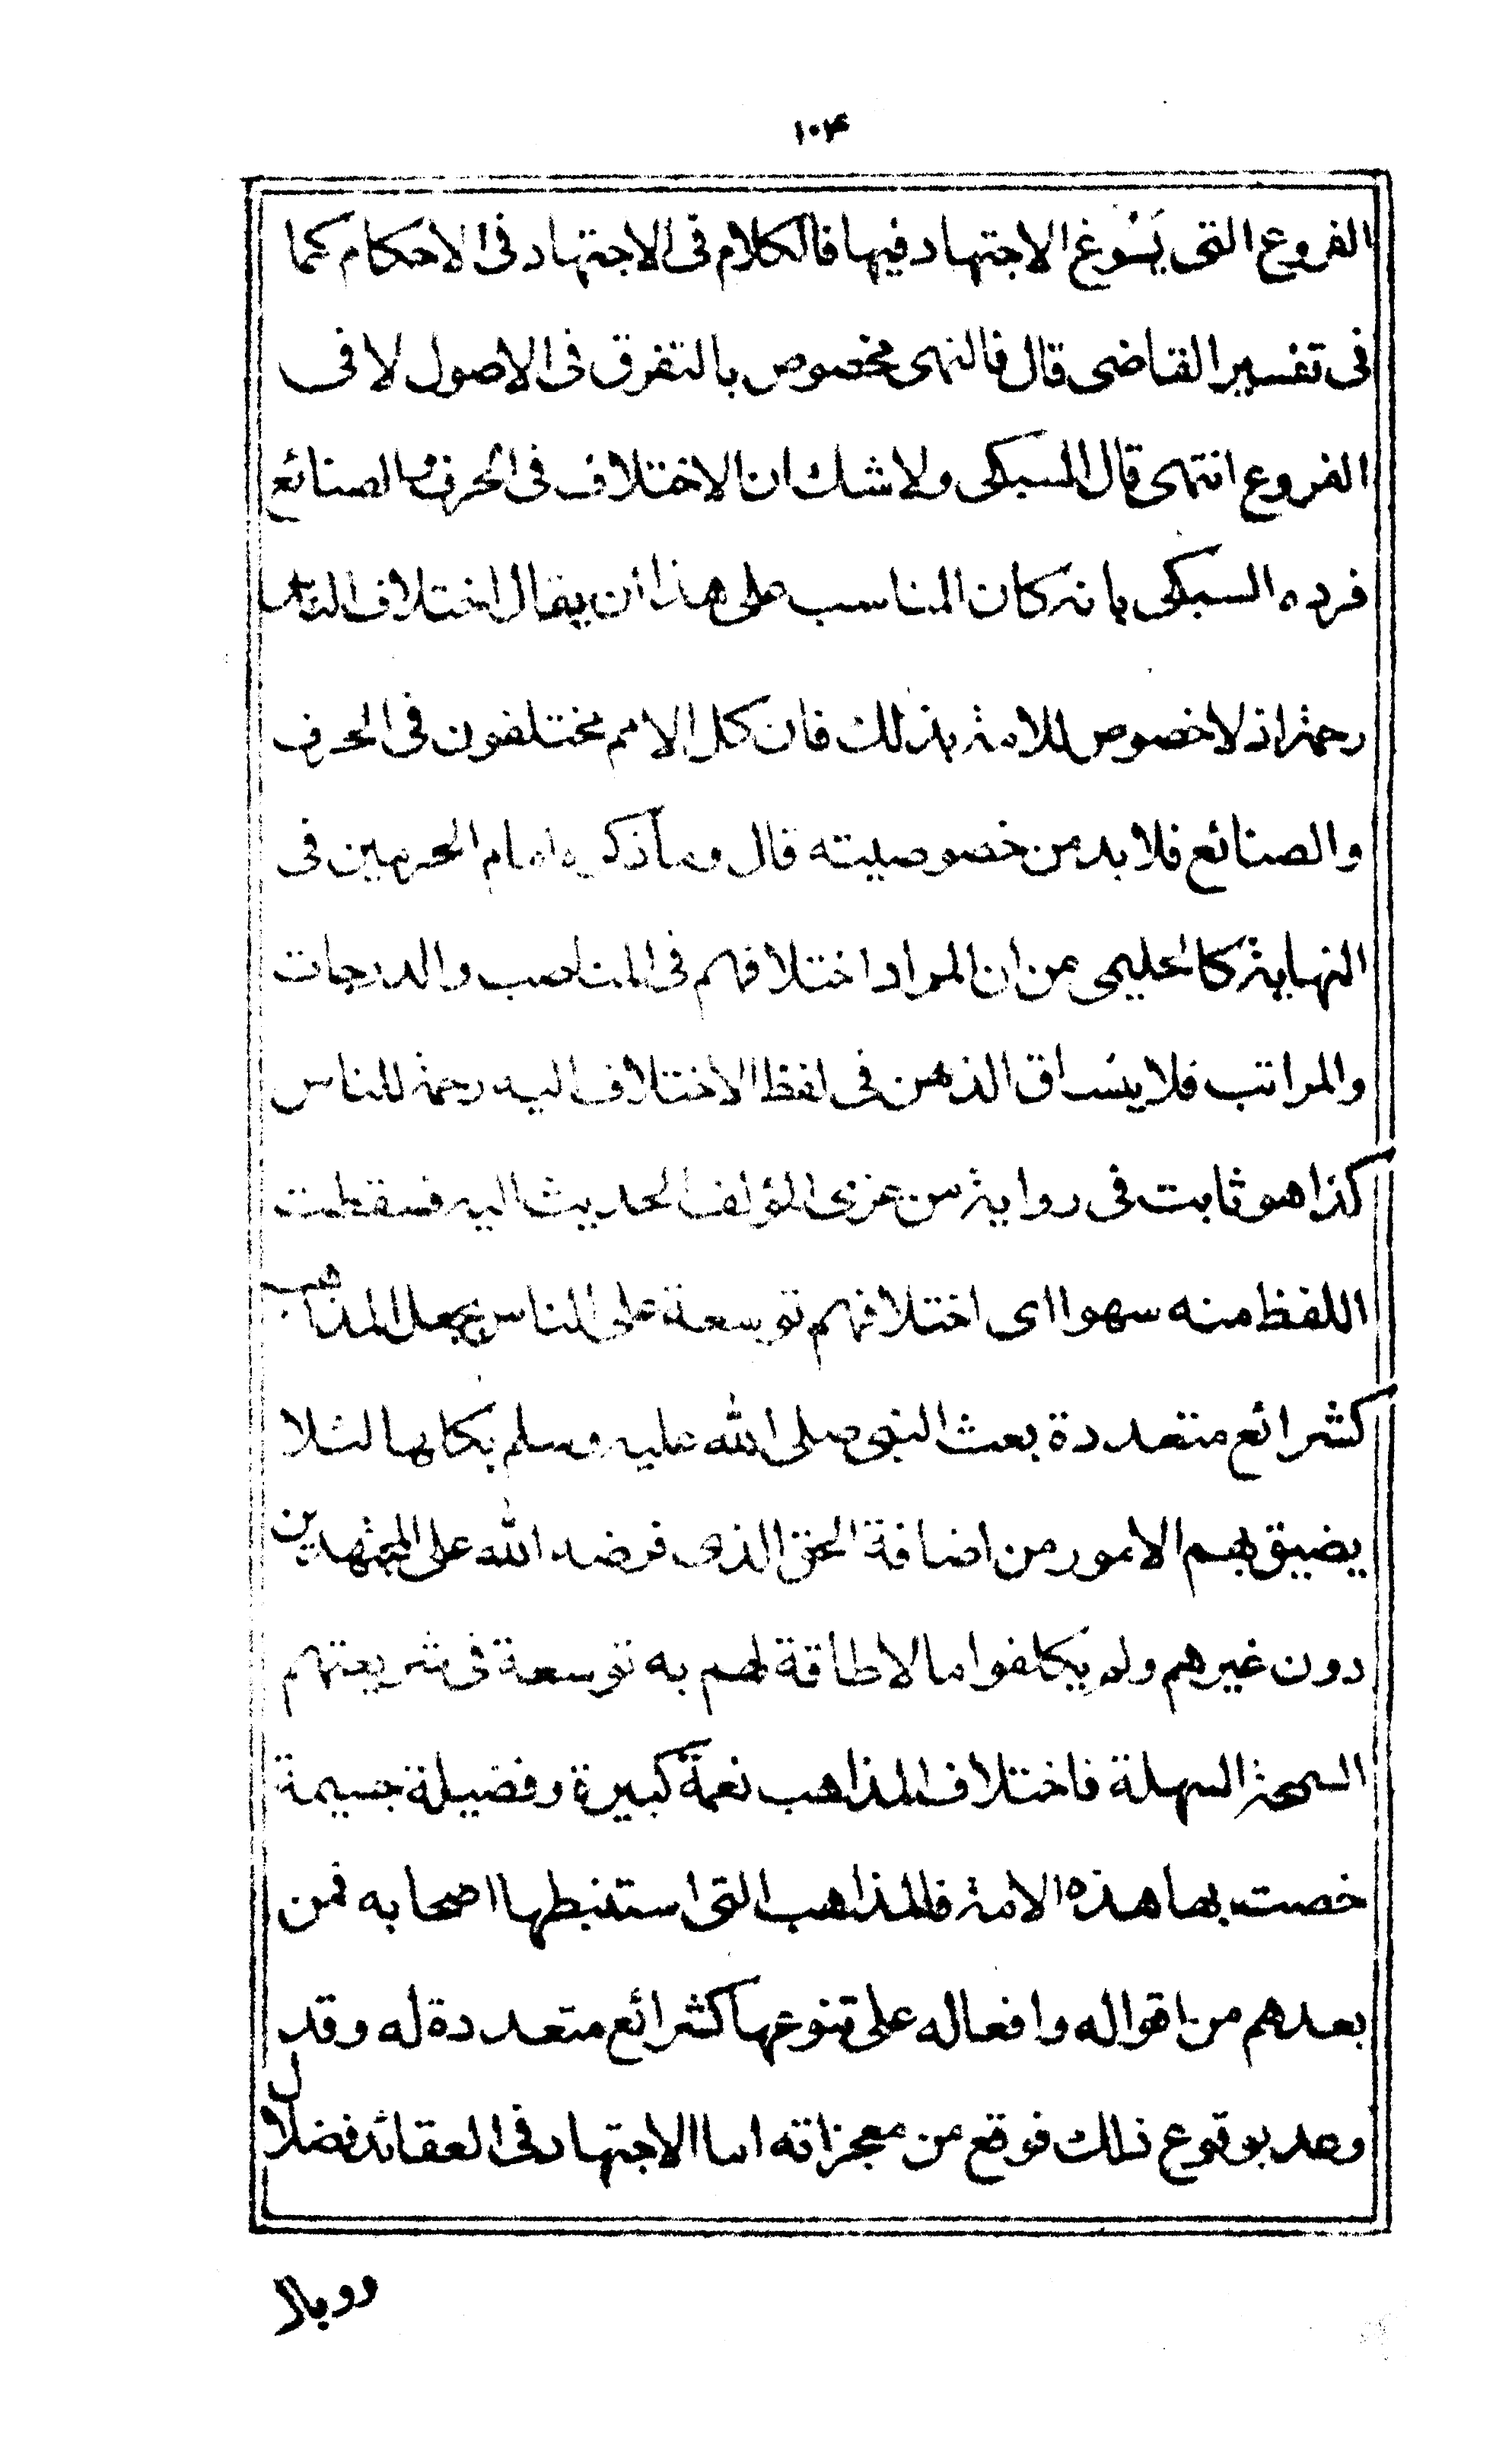 ١٠۴
الفروع التى يَسُوغ الاجتهاد فيها فالكلام فى الاجتهاد فى الاحكام كما
فى تفسير القاضى قال فالنهى مخصوص بالتفرق فى الاصول لا فى
الفروع انتهى قال السبكى ولا شك ان الاختلاف فى الحرف والصنائع
فرده السبكى بانه كان المناسب على هذا ان يقال اختلاف الناس
رحمة اذ لا خصوص للامة بذلك فان كل الامم مختلفون فى الحرف
والصنائع فلا بد من خصوصيته قال وما ذكره امام الحرمين فى
النهاية كالحليمى من ان المراد اختلافهم فى المناصب والدرجات
والمراتب فلا ينساق الذهن فى لفظ الاختلاف اليه رحمة للناس
كذا هو ثابت فى رواية من عزى المؤلف الحديث اليه فسقطت
اللفظ منه سهوا اى اختلافهم توسعة على الناس بجعل المذاهب
كشرائع متعددة بعث النبى صلى الله عليه وسلم بكلها لئلا
يضيق بهم الامور من اضافة الحق الذى فرضه الله على المجتهدين
دون غيرهم ولم يكلفوا ما لا طاقة لهم به توسعة فى شريعتهم
السمحة السهلة فاختلاف المذاهب نعمة كبيرة وفضيلة جسيمة
خصت بها هذه الامة فالمذاهب التى استنبطها اصحابه فمن
بعدهم من اقواله وافعاله على تنوعها كشرائع متعددة له وقد
وعد بوقوع ذلك فوقع من معجزاته اما الاجتهاد فى العقائد فضلال
ووبال